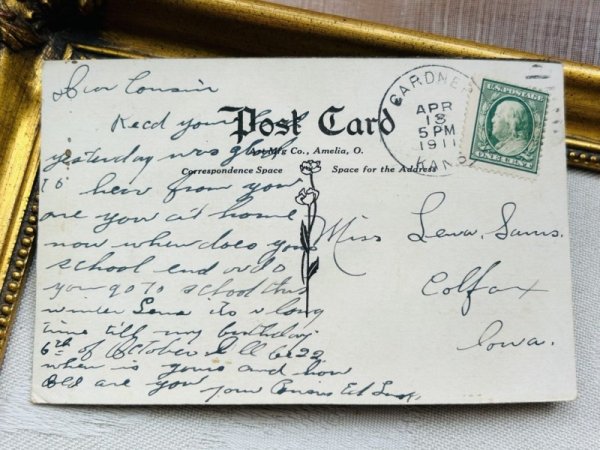 Dear Cousin
Recd your
yesterday was glad
to hear from you
are you at home
now when does your
school end
you go to school this
winter Lena its a long
time till my birthday
6th of October Ill be 22
when is yours and how
old are you
your Cousin Ed
Post Card
Mfg Co., Amelia, O.
Correspondence Space
Space for the Address
GARDNER
APR
18
5 PM
1911
KANS
U.S. POSTAGE
ONE CENT
Miss Lena Sams.
Colfax
Iowa.